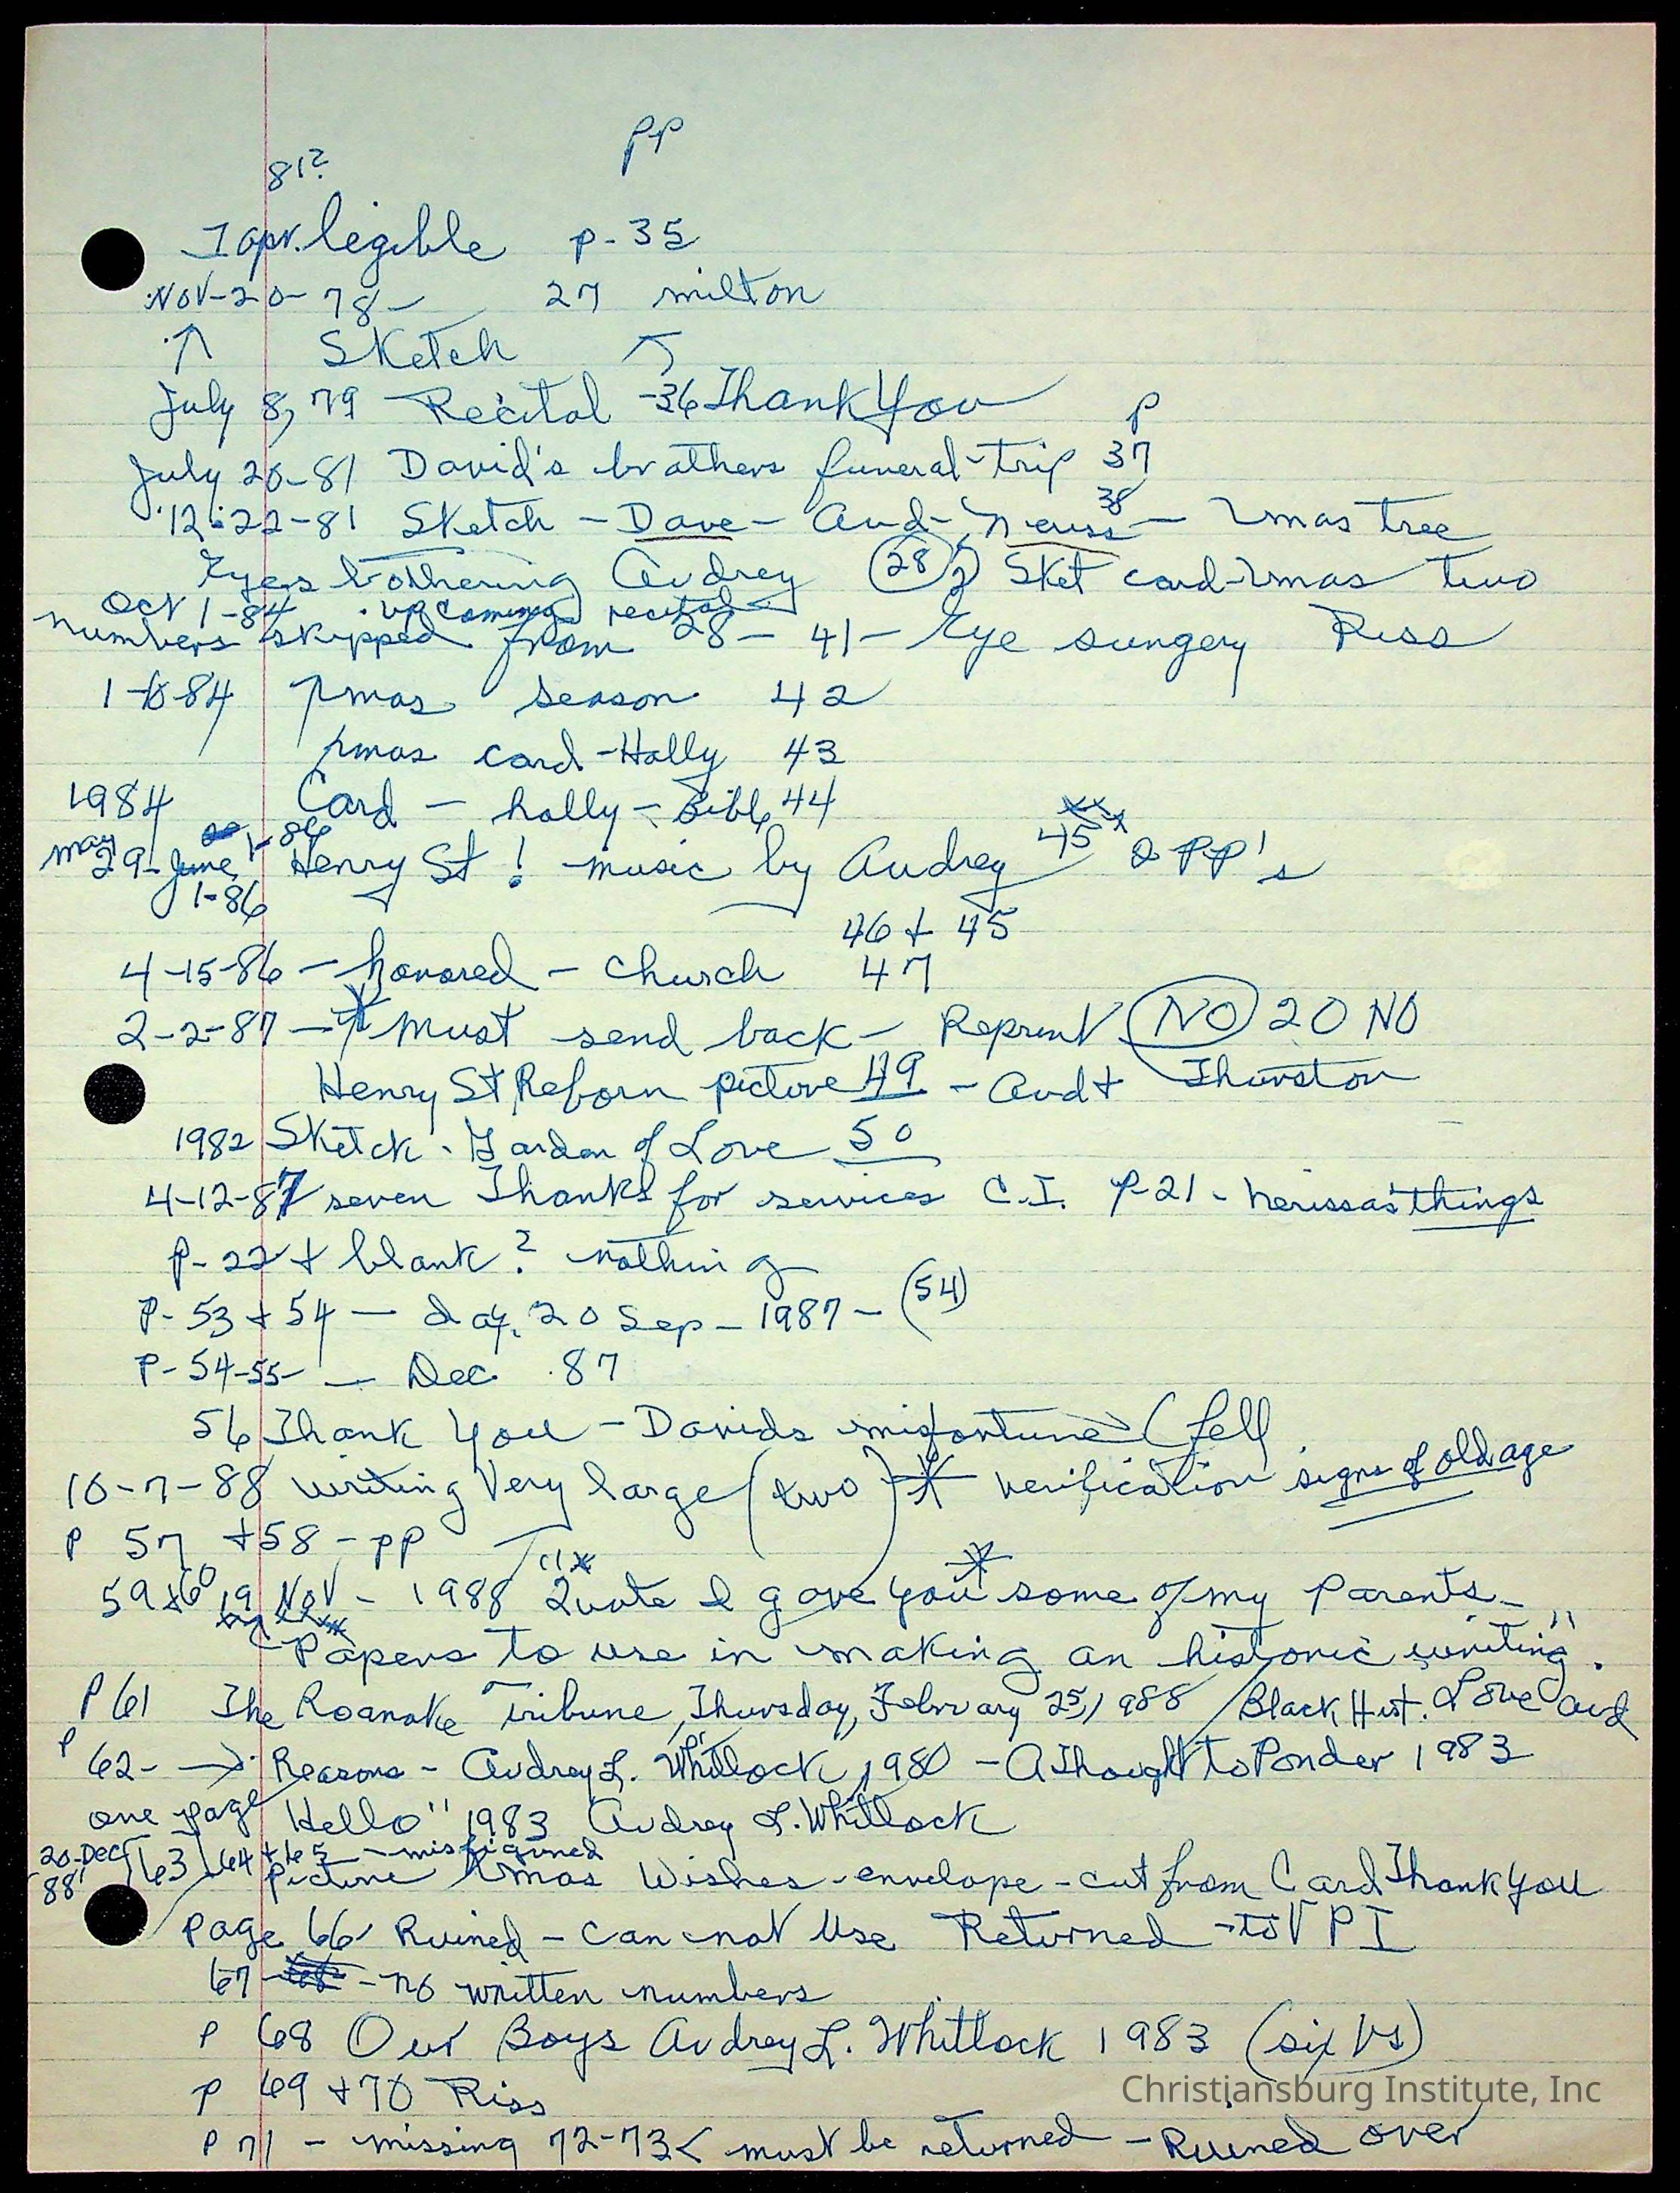 pp
81?
1 apr. legible p-35
Nov-20-78- 27 milton
↑ Sketch ↖
July 8, 79 Recital -36 Thank You
p
July 20-81 David's brothers funeral-trip 37
38
12-22-81 Sketch - Dave - Aud- Neriss - Xmas tree
Eyes bothering Audrey (28)? Sket card-Xmas two
Oct 1-84 . up coming recital
numbers skipped from 28 - 41 - Eye surgery Riss
1-6-84 Xmas season 42
Xmas card-Holly 43
1984 Card - holly - Bible 44
1-86
May 29-June 1-86 Henry St! music by Audrey 45 2 PP's
46 + 45
4-15-86 - honored - church 47
2-2-87 - * Must send back - Reprint NO 20 NO
Henry St Reborn picture 49 - Aud + Thurston
1982 Sketch - Garden of Love 50
4-12-87 seven Thanks for services C.I. P-21 - Nerissa's things
P-22 + blank? nothing
P-53 + 54 - day, 20 Sep - 1987 - (54)
P-54-55- - Dec. 87
56 Thank You - Davids misfortune (fell
10-7-88 writing Very large (two) * verification signs of old age
P 57 +58 - pp
59 + 60 19 Nov - 1988 Quote "I gave you some of my Parents
Papers to use in making an historic writing".
P 61 The Roanoke Tribune, Thursday, February 25, 1988 / Black Hist. Love and
P 62- → Reasons - Audrey L. Whitlock, 1980 - A Thought to Ponder 1983
one page Hello" 1983 Audrey L. Whitlock
20-Dec 88' 63 64 + 65 - misfigured
Picture Xmas Wishes - envelope - cut from Card Thank You
page 66 Ruined - Can not Use Returned - to VPI
67 - no written numbers
P 68 Our Boys Audrey L. Whitlock 1983 (six Vs)
P 69 + 70 Riss
P 71 - missing 72-73< must be returned - Ruined over
Christiansburg Institute, Inc